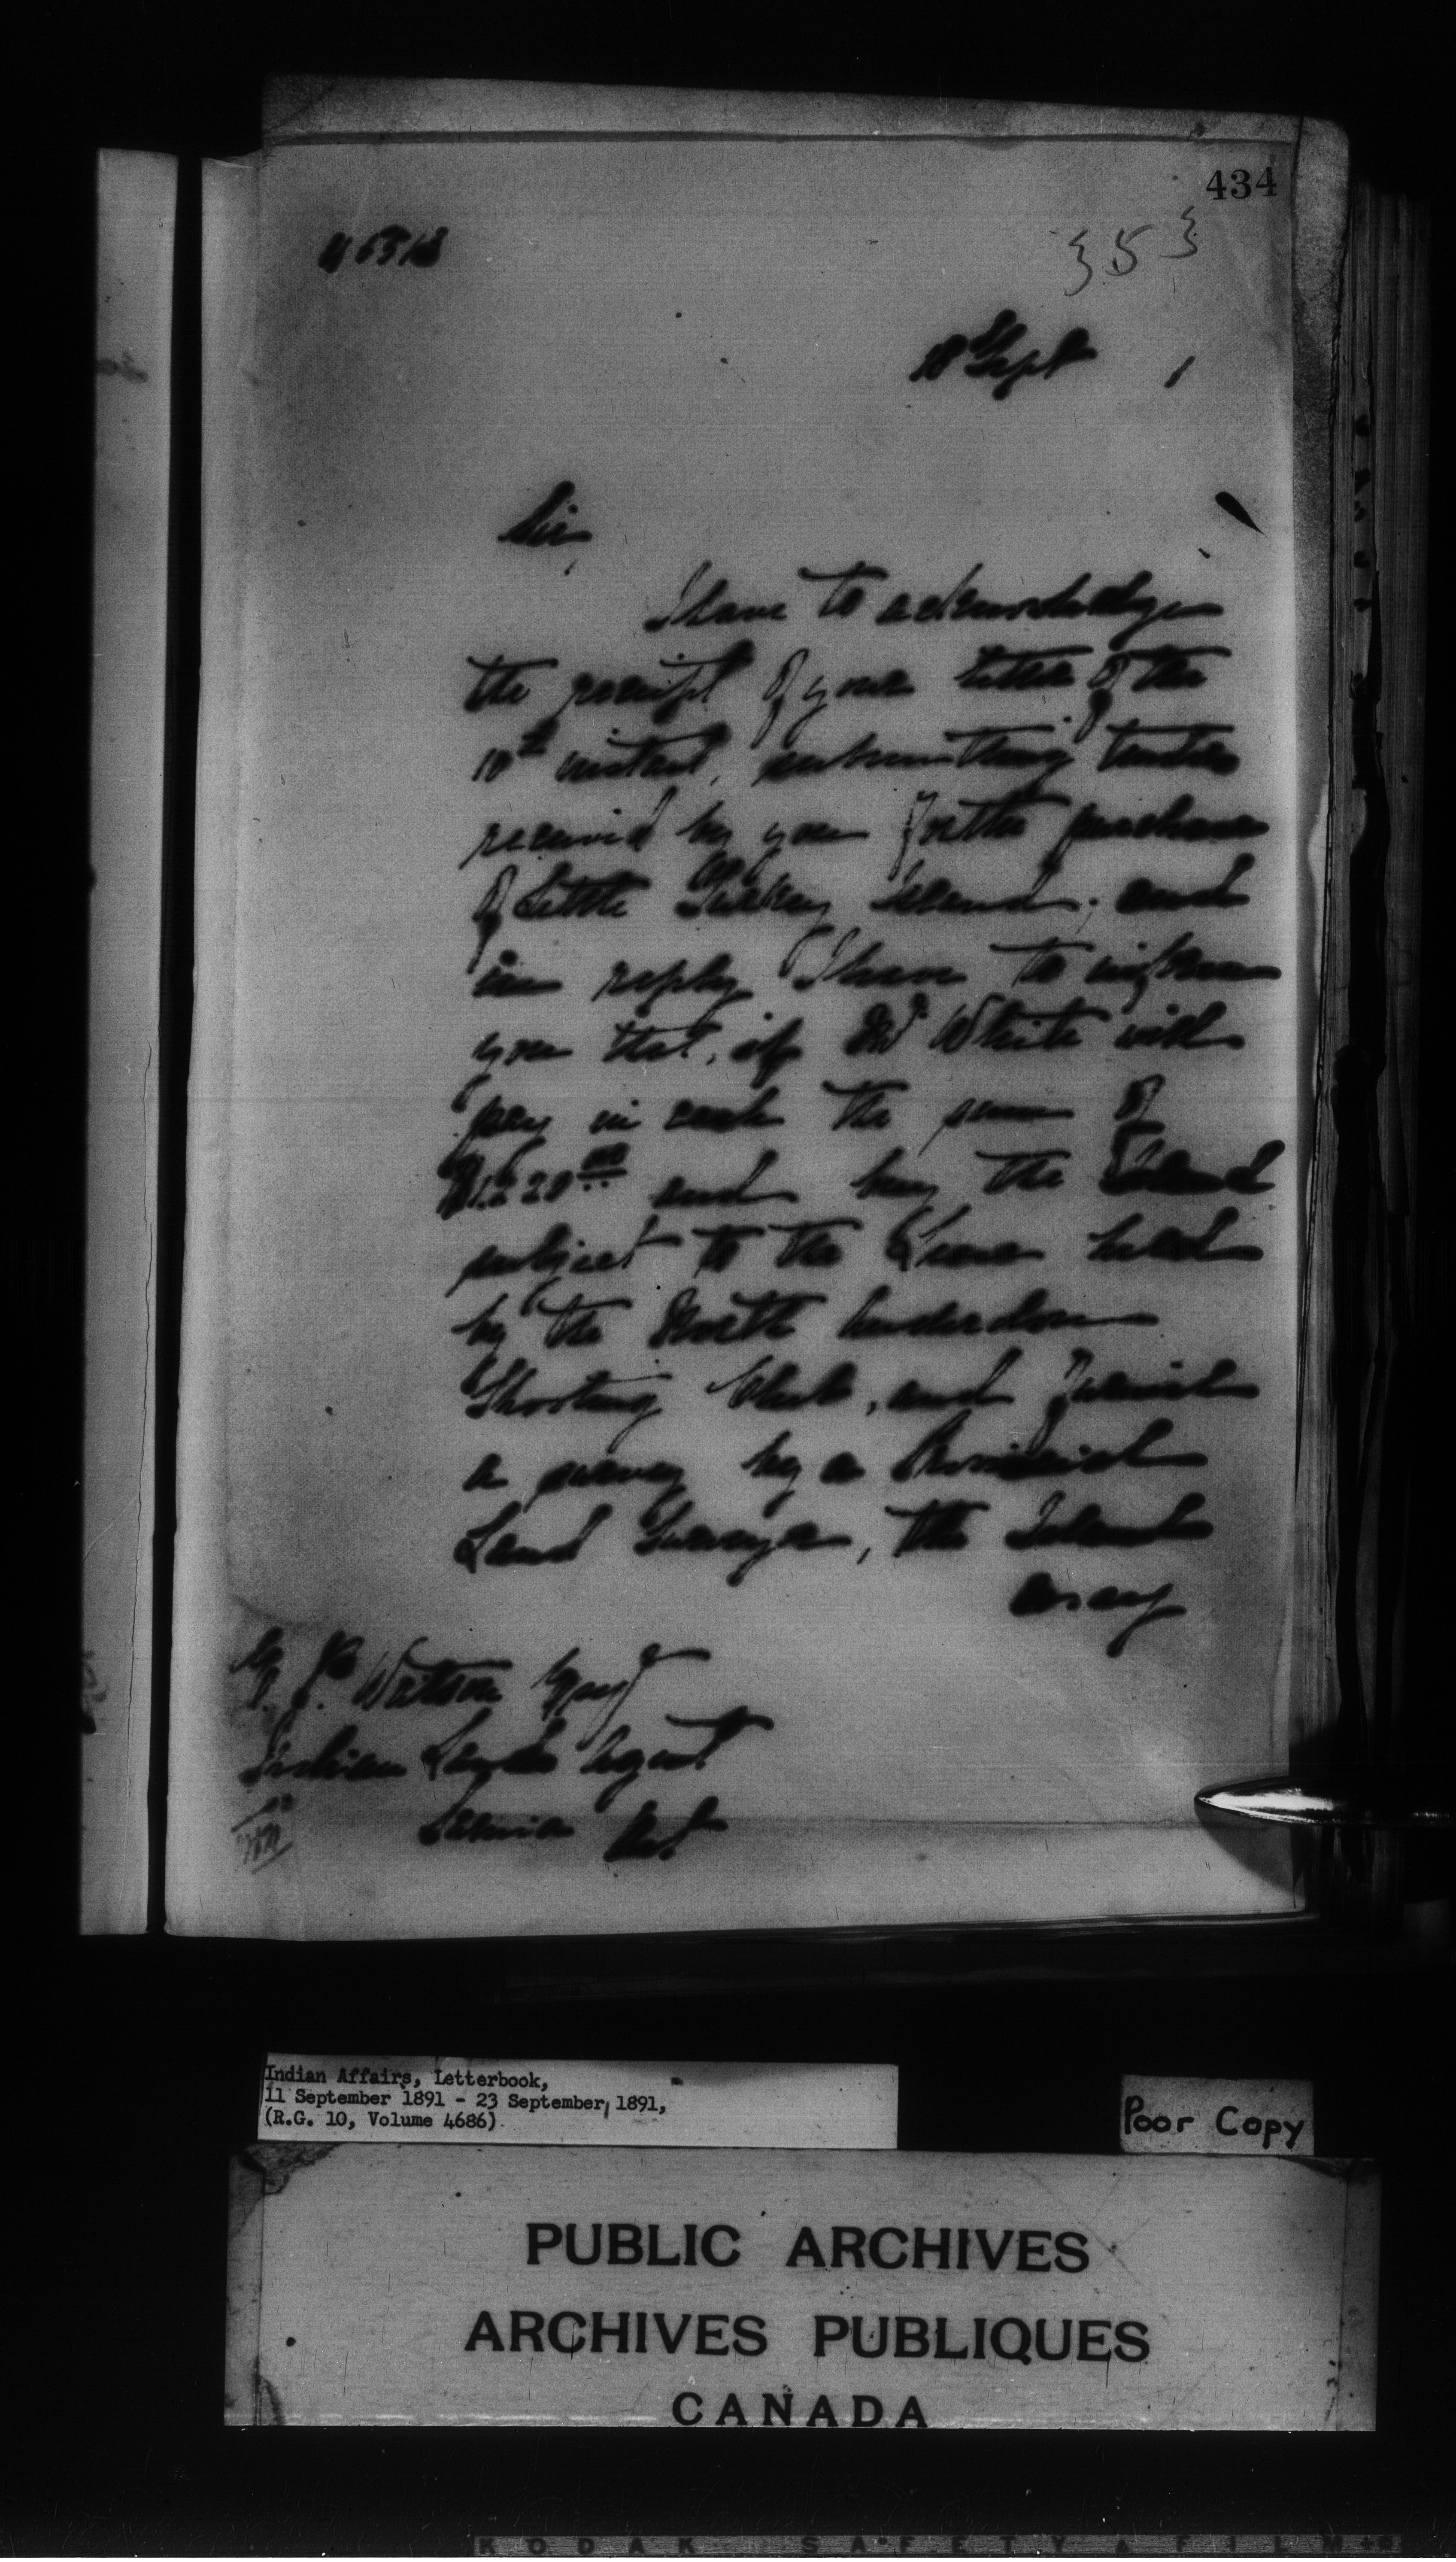 434
353
18 Sept 1
Sir,
I have to acknowledge
the receipt of your letter of the
10th instant, submitting tenders
received by you for the purchase
of Little Turkey Island; and
in reply I have to inform
you that, if Mr White will
pay in cash the sum of
$1220 00 and buy the Island
subject to the lease held
by the North Anderdon
Shooting Club, and furnish
a survey by a Provincial
Land Surveyor, the Island
may
Watson Esqr
Indian Lands Agent
Sarnia Ont
Indian Affairs, Letterbook,
11 September 1891 - 23 September, 1891,
(R.G. 10, Volume 4686)
Poor Copy
PUBLIC ARCHIVES
ARCHIVES PUBLIQUES
CANADA
KODAK SAFETY FILM